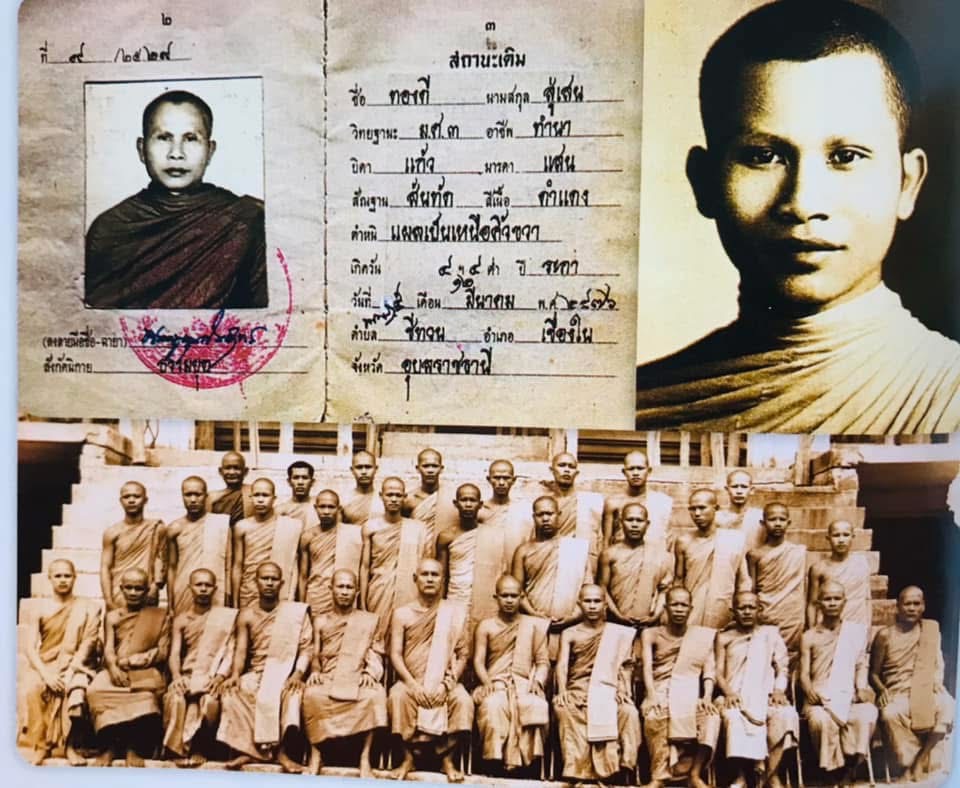 ๒
ที่ ๙๙ /๒๕๒๗
(ลงลายมือชื่อ-ฉายา)
สังกัดนิกาย ธรรมยุต
๓
สถานะเดิม
ชื่อ ทองดี นามสกุล สุ้เสน
วิทยฐานะ ม.ศ.๓ อาชีพ ทำนา
บิดา แก้ว มารดา แสน
สัณฐาน สันทัด สีเนื้อ ดำแดง
ตำหนิ แผลเป็นเหนือคิ้วขวา
เกิดวัน ๔ ฯ ๔ ค่ำ ปี ระกา
๑๒
วันที่ เดือน มีนาคม พ.ศ. ๒๔๗๖
ตำบล ชีทวน อำเภอ เขื่องใน
จังหวัด อุบลราชธานี